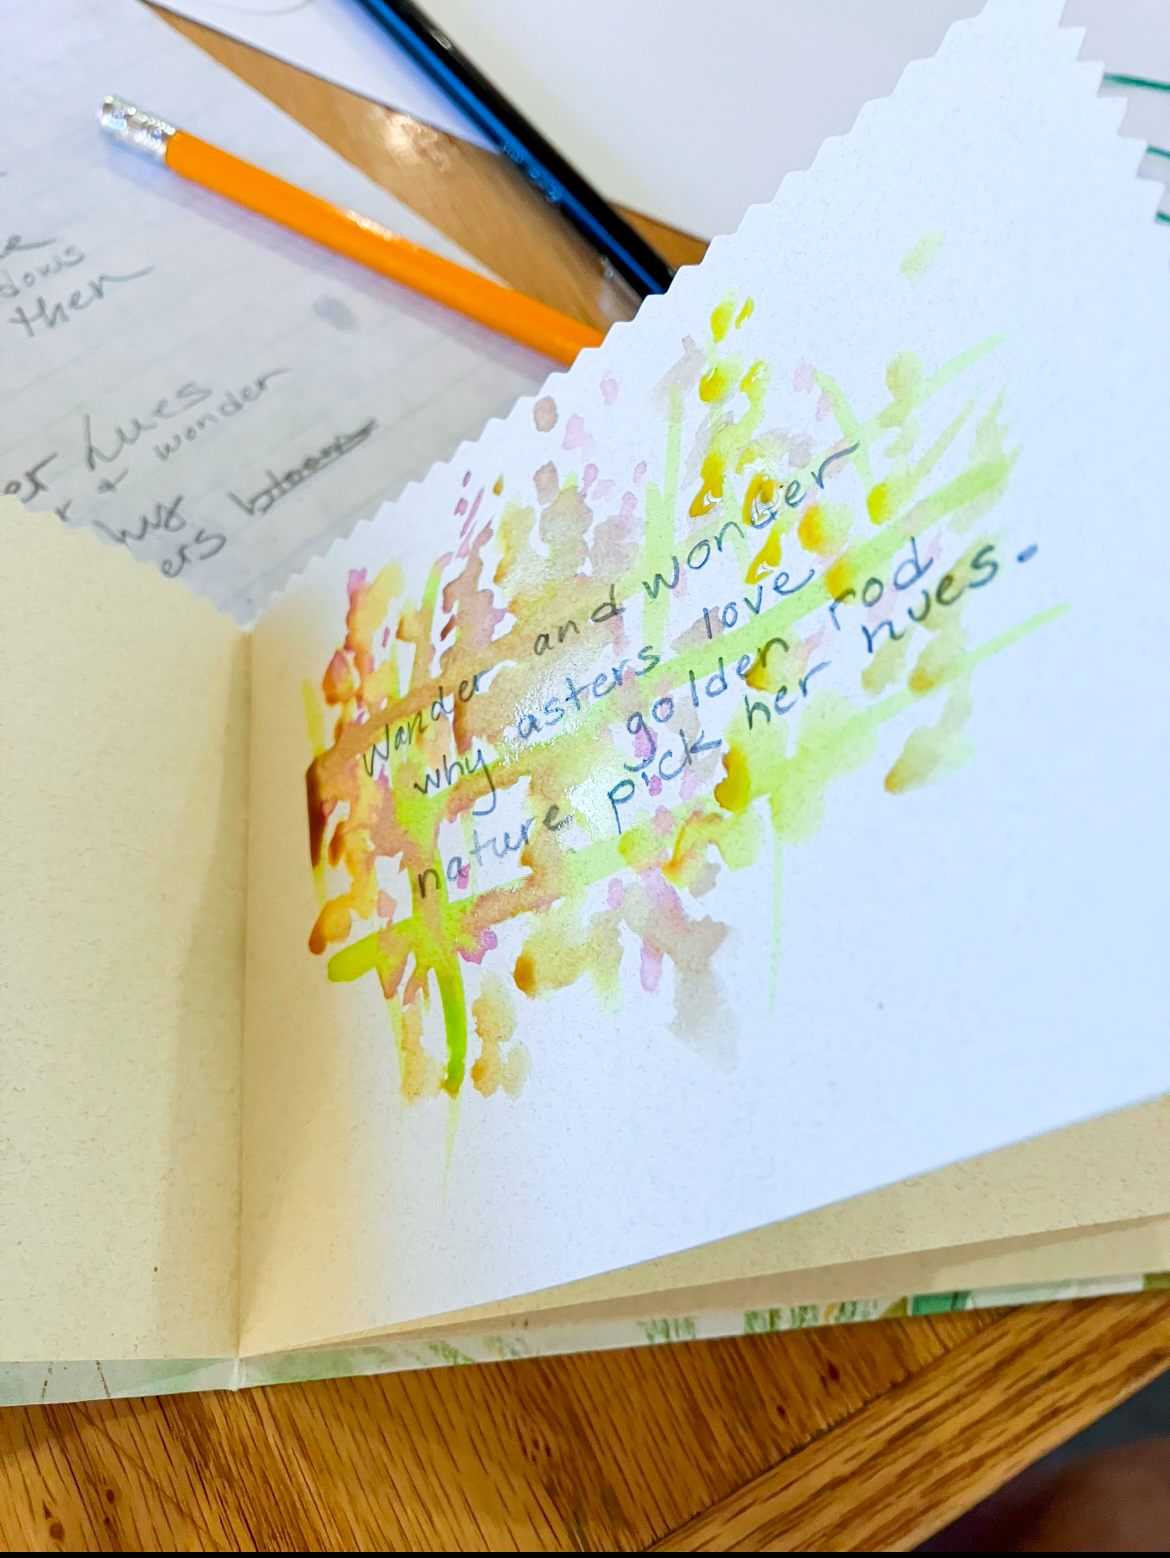 then
er hues
& wonder
ers bloom
Wander and wonder
why asters love
golden rod
nature pick her hues.